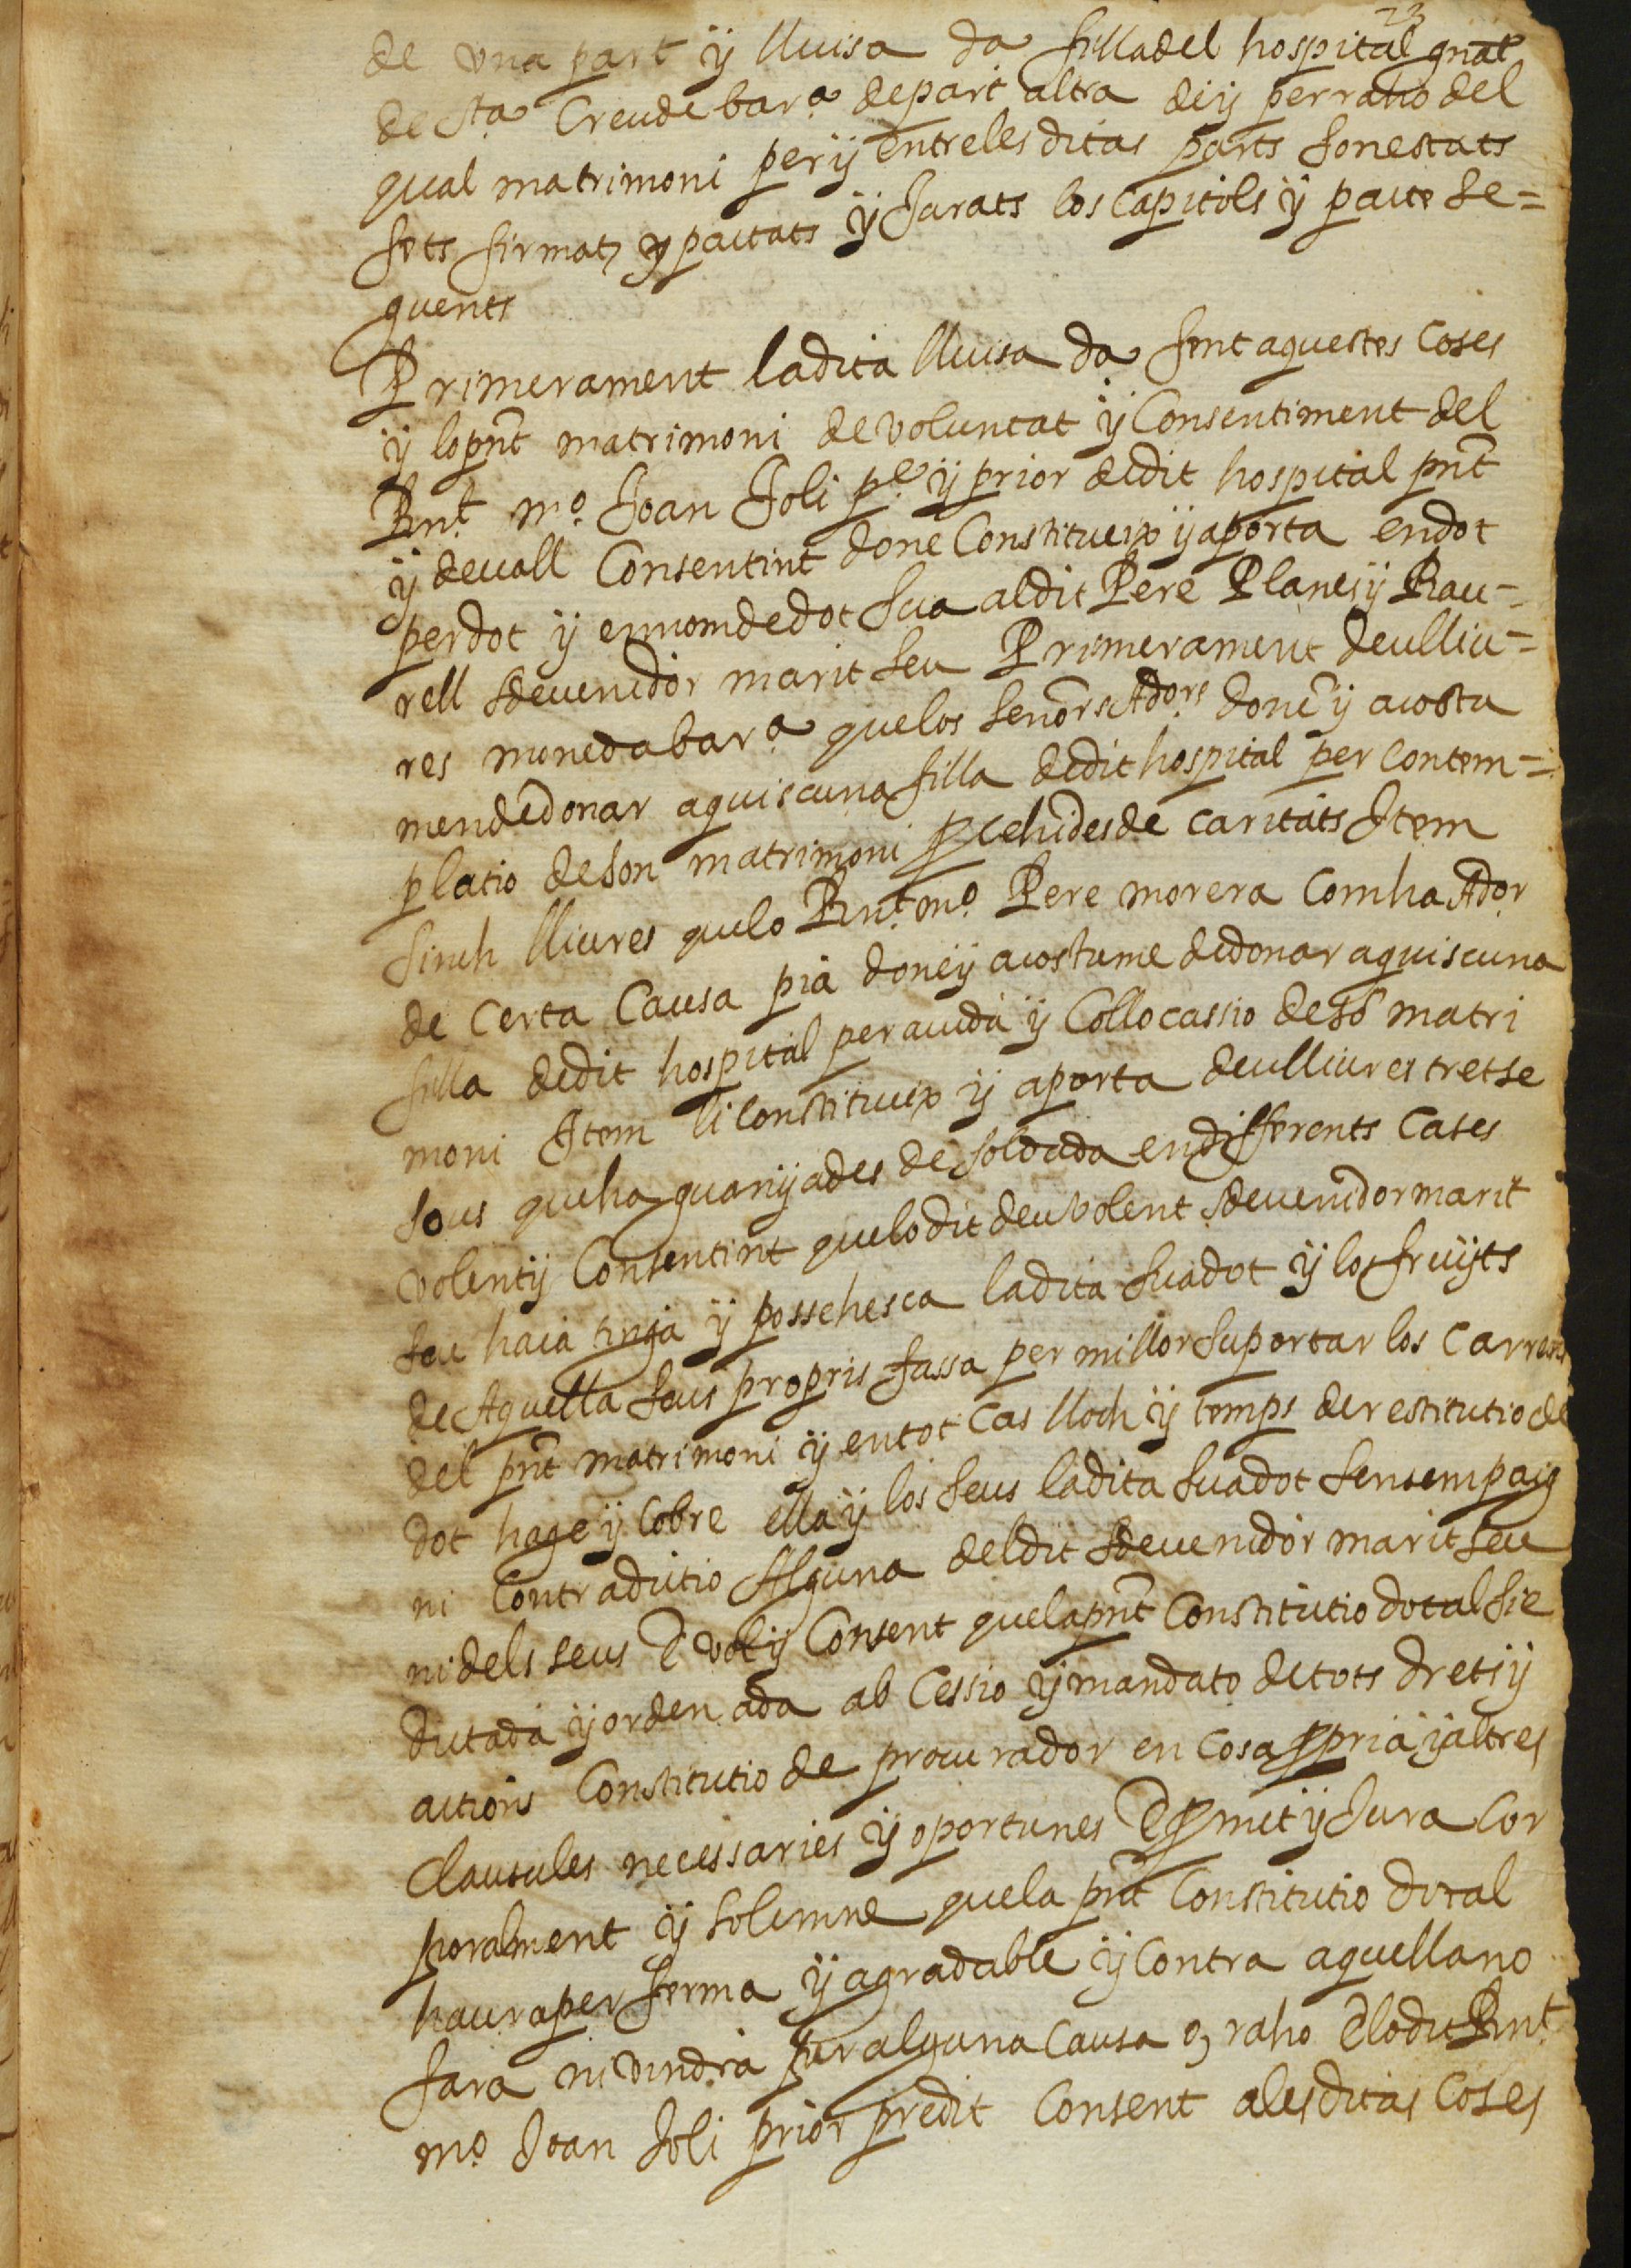 23
de vna part ÿ lluisa da filla del hospital gnal
de sta Creu de bar.a de part altra de ÿ per raho del
qual matrimoni per ÿ entre les ditas parts son estats
fets firmats y pactats ÿ Jurats los capitols ÿ pacte se=
guents
Primerament la dita lluisa da fent aquestes Coses
ÿ lo pnt matrimoni de voluntat ÿ Consentiment del
Rnt. mo. Joan Joli pe. ÿ prior de dit hospital pnt
ÿ devall Consentint done Constitueix ÿ aporta en dot
per dot ÿ en nom de dot sua al dit Pere Planes ÿ Rau=
rell sdevenidor marit seu Primerament deu lliu=
res moneda bar.a que los senors Ados done ÿ acostu
men de donar a quiscuna filla de dit hospital per contem=
platio de son matrimoni pcehides de caritats Item
sinch lliures que lo Rnt. mo. Pere morera com ha Ador
de Certa Causa pia done ÿ acostume de donar a quiscuna
filla de dit hospital per aiuda ÿ Collocassio de so matri
moni Item li Constitueix ÿ aporta deu lliures tretse
sous que ha guanÿades de soldada en differents Cases
volent ÿ Consentint que lo dit deu volent sdevenidor marit
seu haia tinga ÿ possehesca la dita sua dot ÿ los fruÿts
de Aquella seus propris fassa per millor suportar los Carrechs
del pnt matrimoni ÿ en tot Cas lloch ÿ temps de restitutio de
dot hage ÿ Cobre ella ÿ los seus la dita sua dot sens empaig
ni Contradictio Alguna del dit sdevenidor marit seu
ni dels seus E vol ÿ Consent que la pnt Constitutio dotal sie
dictada ÿ ordenada ab Cessio ÿ mandato de tots drets ÿ
actions Constitutio de procurador en Cosa ppria ÿ altres
Clausules necessaries ÿ oportunes E pmet ÿ Jura Cor
poralment ÿ solemne que la pnt Constitutio dotal
haura per ferma ÿ agradable ÿ Contra aquella no
fara ni vindra per alguna Causa o raho E lo dit Rnt.
mo. Joan Joli prior predit Consent a les ditas Coses